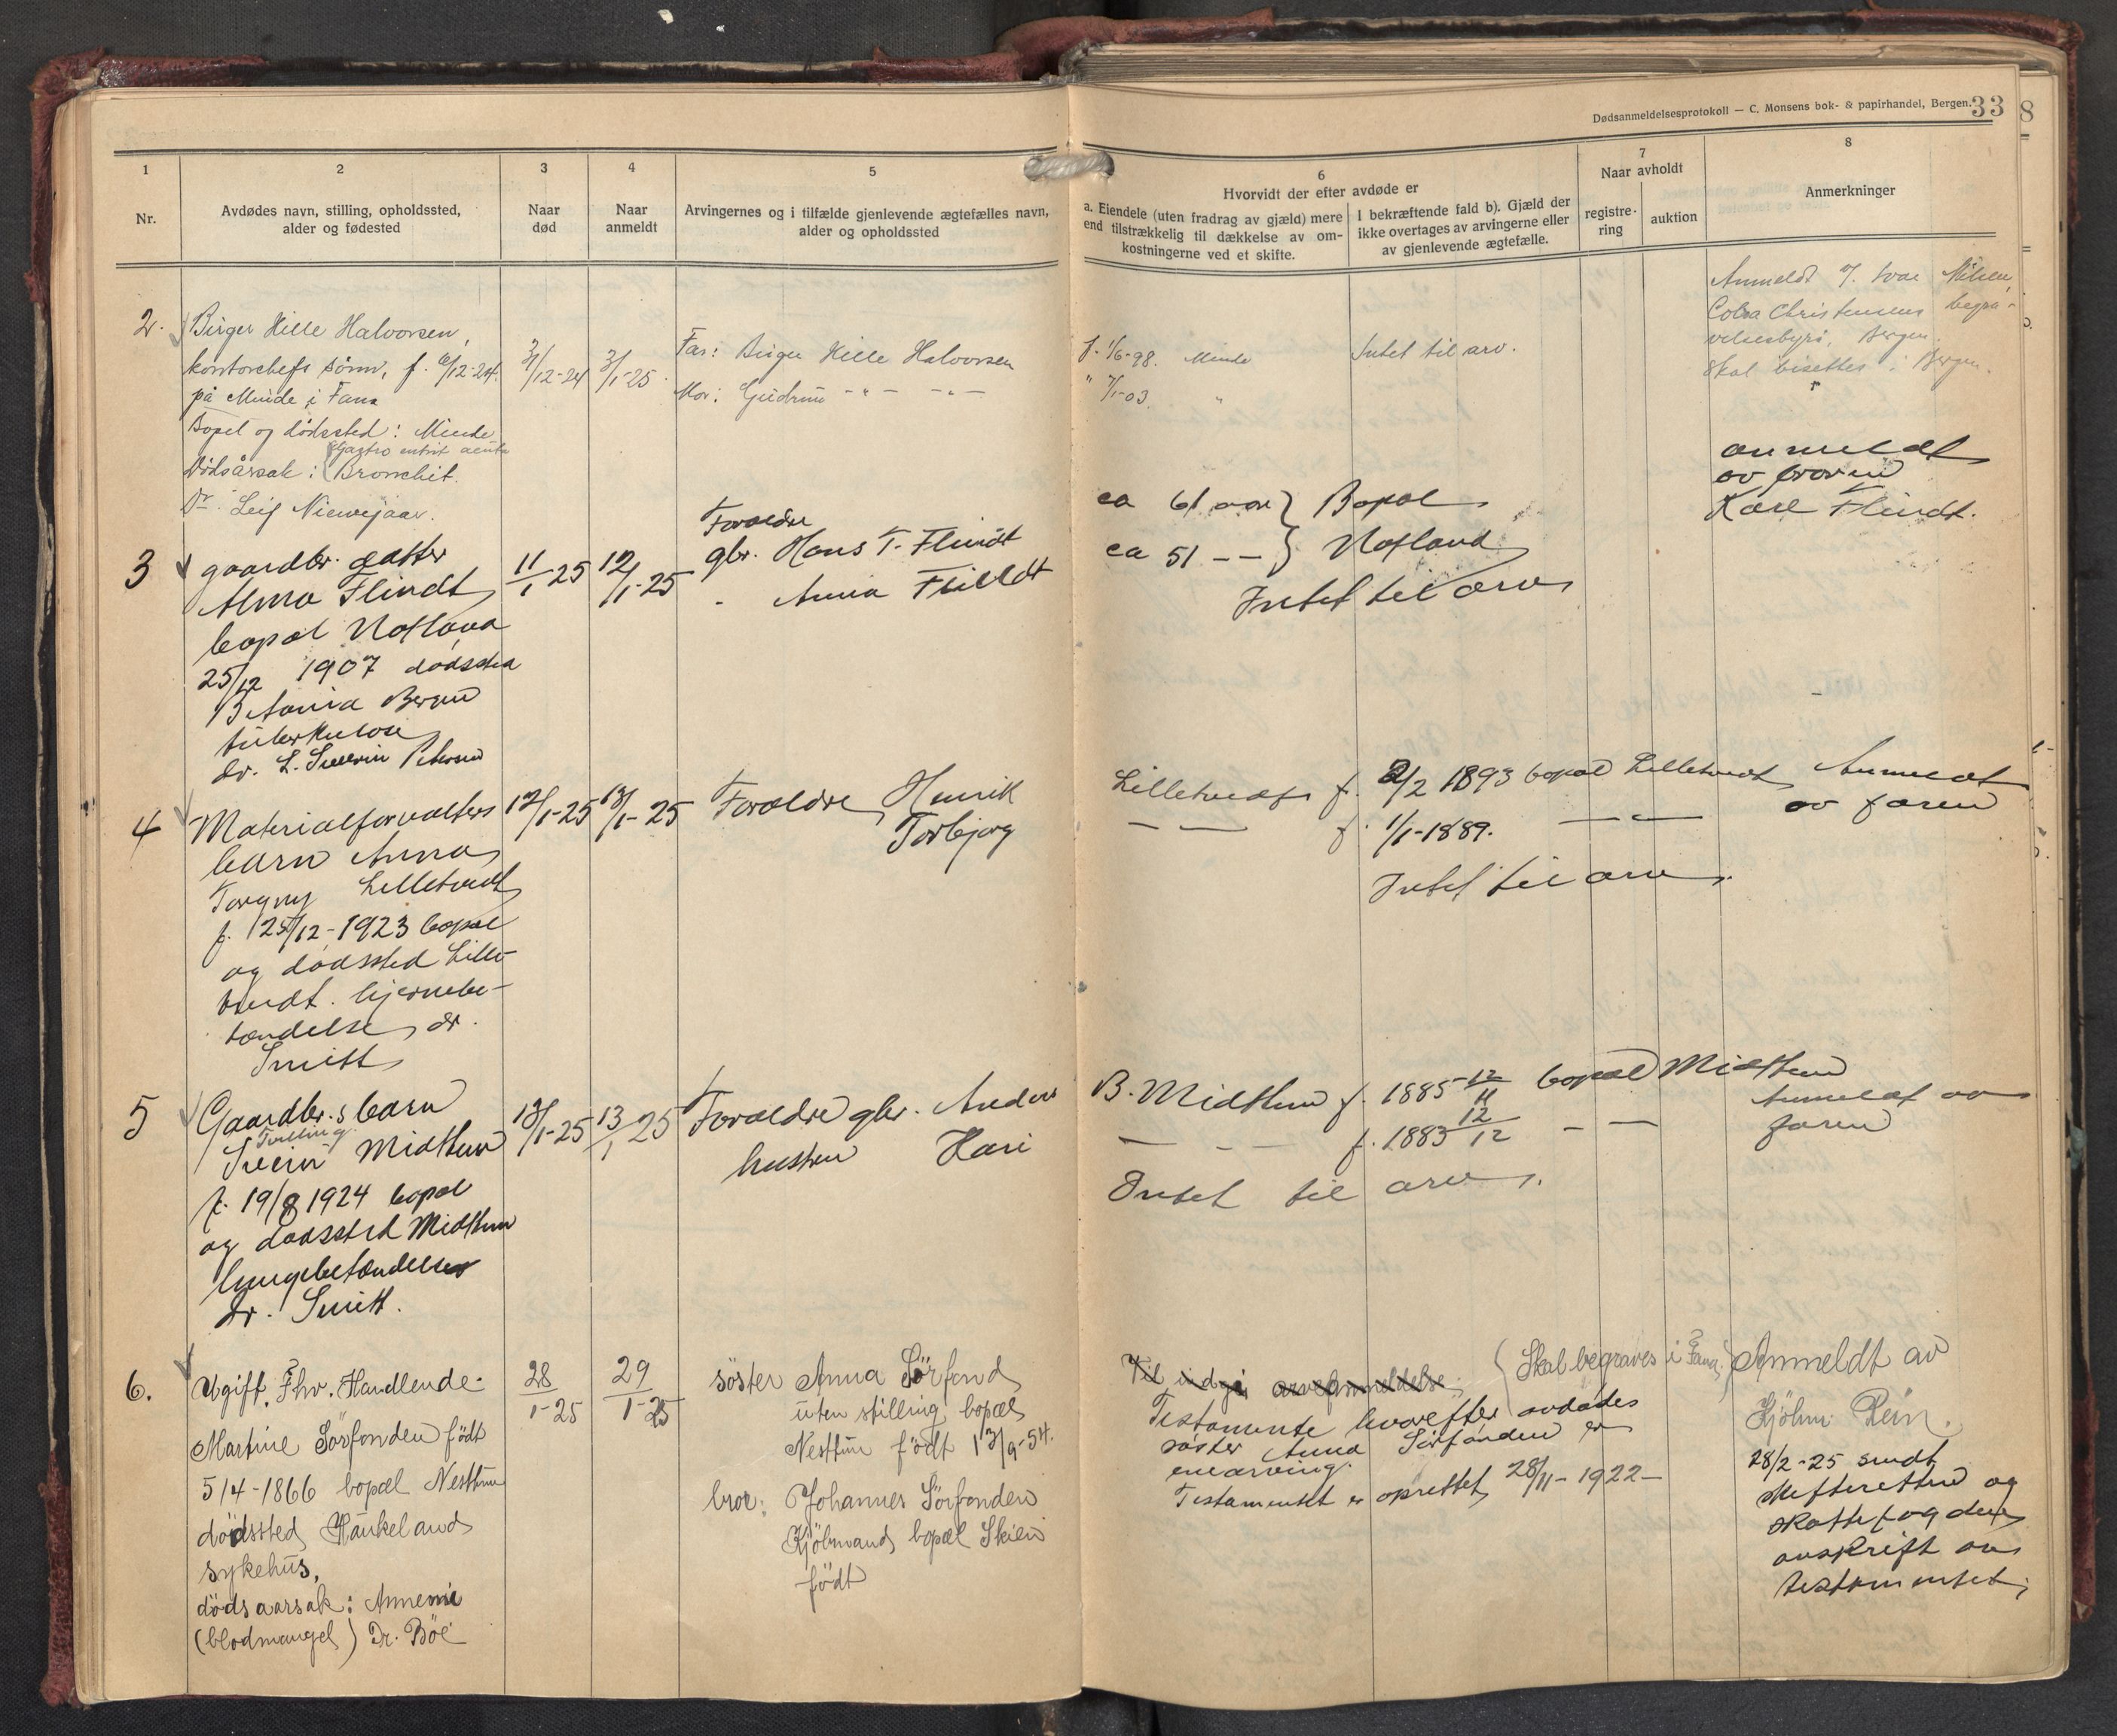 Dødsanmeldelsesprotokoll — C. Monsens bok- & papirhandel, Bergen.
33
8
1
2
3
4
5
6
7
8
Nr.
Avdødes navn, stilling, opholdssted,
alder og fødested
Naar
død
Naar
anmeldt
Arvingernes og i tilfælde gjenlevende ægtefælles navn,
alder og opholdssted
Hvorvidt der efter avdøde er
a. Eiendele (uten fradrag av gjæld) mere
end tilstrækkelig til dækkelse av om-
kostningerne ved et skifte.
I bekræftende fald b). Gjæld der
ikke overtages av arvingerne eller
av gjenlevende ægtefælle.
Naar avholdt
registre-
ring
auktion
Anmerkninger
2.
Birger Hille Halvorsen,
kontorchefs sønn, f. 6/12-24.
på Minde i Fana
Bopel og dødssted: Minde
Gastro enterit acuta
Dødsårsak: Bronchit.
Dr. Leif Nieuwejaar.
/12-24
3/1-25
Far: Birger Hille Halvorsen
Mor: Gudrun -"- -"-
f. 1/6-98. Minde
" 7/1-03. "
Intet til arv.
Anmeldt
Christensens begra-
velsesbyrå, Bergen.
Skal bisettes i Bergen.
3
gaardbr. datter
Alma Flindt
bopæl Hofland
25/12 1907 dødssted
Betania Bergen
tuberkulose
dr. L. Severin Petersen
11/1-25
12/1-25
Foreldre
gbr. Hans T. Flindt
Anna Flindt
ca 61 aar } Bopæl
ca 51 — — } Hofland
Intet til arv
anmeldt
av broren
Kare Flindt.
4
Materialforvalters
barn Anna
Torgny Lilletvedt
f. 25/12-1923 bopæl
og dødssted Lille-
tvedt. hjernebe-
tændelse, dr.
Smitt
12/1-25
13/1-25
Foreldre, Henrik
Torbjørg
Lilletvedt f. 2/2 1893 bopæl Lilletvedt
— — f. 1/1-1889. — —
Intet til arv.
Anmeldt
av faren
5
Gaardbr.s barn
Tvilling
Svein Midthun
f. 19/8 1924 bopæl
og dødssted Midthun
lungebetændelse
dr. Smitt.
12/1-25
13/1 25
Foreldre gbr. Anders
hustru Kari
B. Midthun f. 1885 12/11 bopæl Midthun
— — f. 1883 12/12 — —
Intet til arv.
Anmeldt av
faren
6.
Ugift. Fhv. Handlende
Martine Sörfonden født
5/4-1866 bopæl Nesttun
dödssted Haukeland
sykehus,
dödsaarsak: Annemie
(blodmangel) Dr. Böe
28/1-25
29/1-25
söster Anna Sörfond
uten stilling bopæl
Nesttun født 13/9-54.
bror: Johannes Sörfonden
Kjöbmand bopæl Skien
født
Til indgi arveanmeldelse.
(Skal begraves i Fana.)
Testamente hvorefter avdødes
søster Anna Sörfonden er
enearving.
Testamentet er oprettet 28/11-1922—
Anmeldt av
Kjöbm. Rein.
28/2-25 sendt
skifteretten og
skattefogden
avskrift av
testamentet.